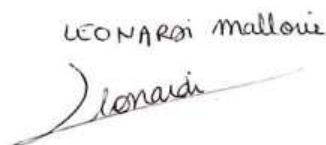 LEONARDi Mallorie
Leonardi